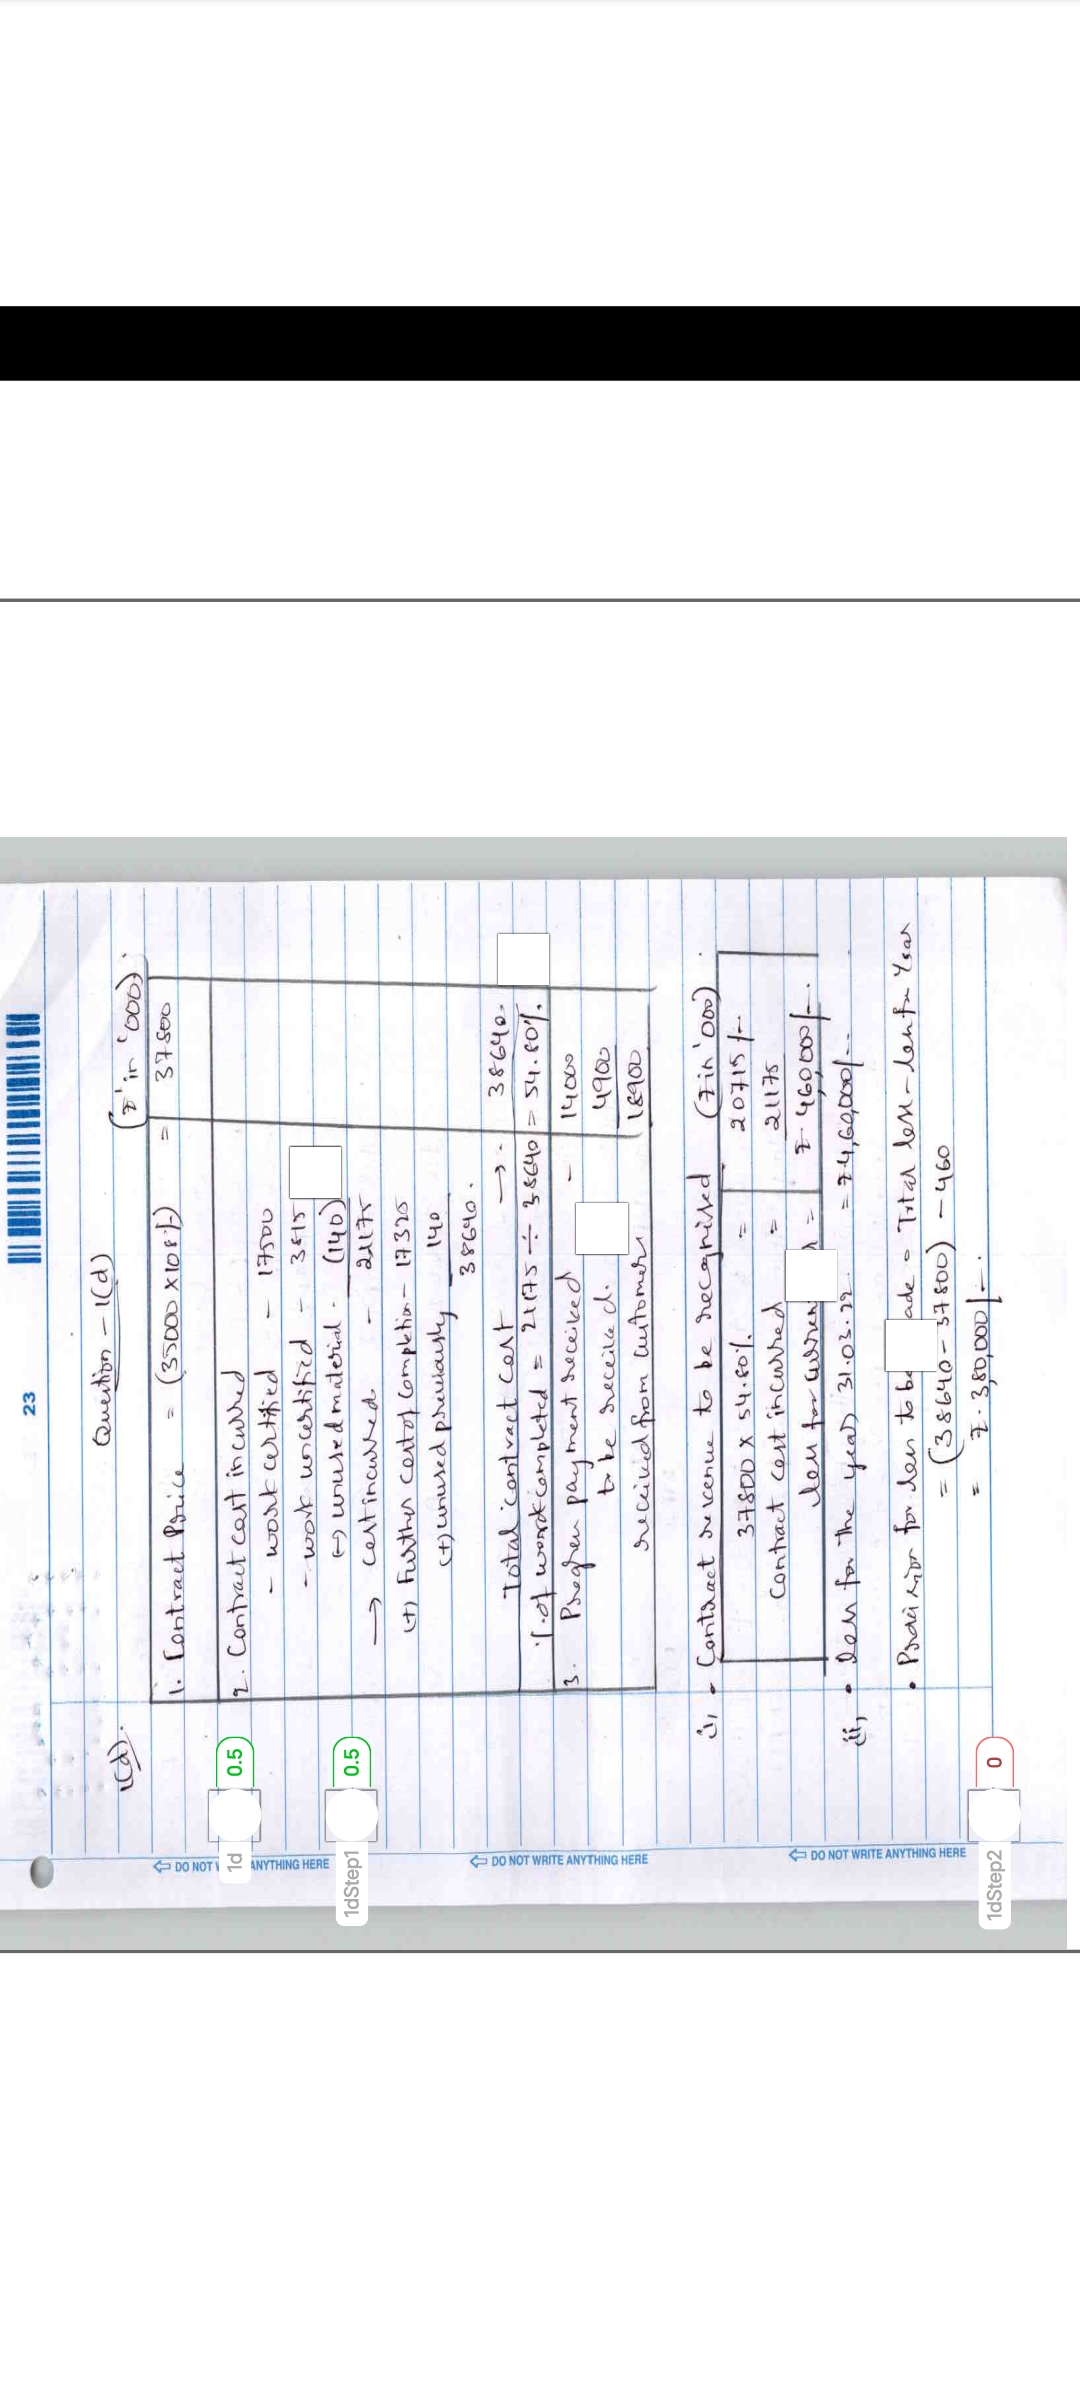 23
Question - 1(d)
1(d).
(₹ in '000).
1. Contract Price = (35000 x 108%) = 37800
2. Contract cost incurred
- work certified - 17500
- work uncertified - 3815
(-) unused material - (140)
→ cost incurred - 21175
(+) Further cost of completion - 17325
(+) unused previously 140
38640.
Total contract cost → 38640.
% of work completed = 21175 ÷ 38640 = 54.80%.
3. Progress payment received - 14000
to be received. 4900
received from customer 18900
i), • Contract revenue to be recognised (₹ in '000)
37800 x 54.80% = 20715/-
Contract cost incurred = 21175
loss for curren = ₹ 460,000/-.
ii), • Loss for the year 31.03.22 = ₹4,60,000/-.
• Provision for loss to be ade = Total loss - loss for Year
= (38640 - 37800) - 460
= ₹. 380,000/-.
1d 0.5
1dStep1 0.5
1dStep2 0
DO NOT W ANYTHING HERE
DO NOT WRITE ANYTHING HERE
DO NOT WRITE ANYTHING HERE